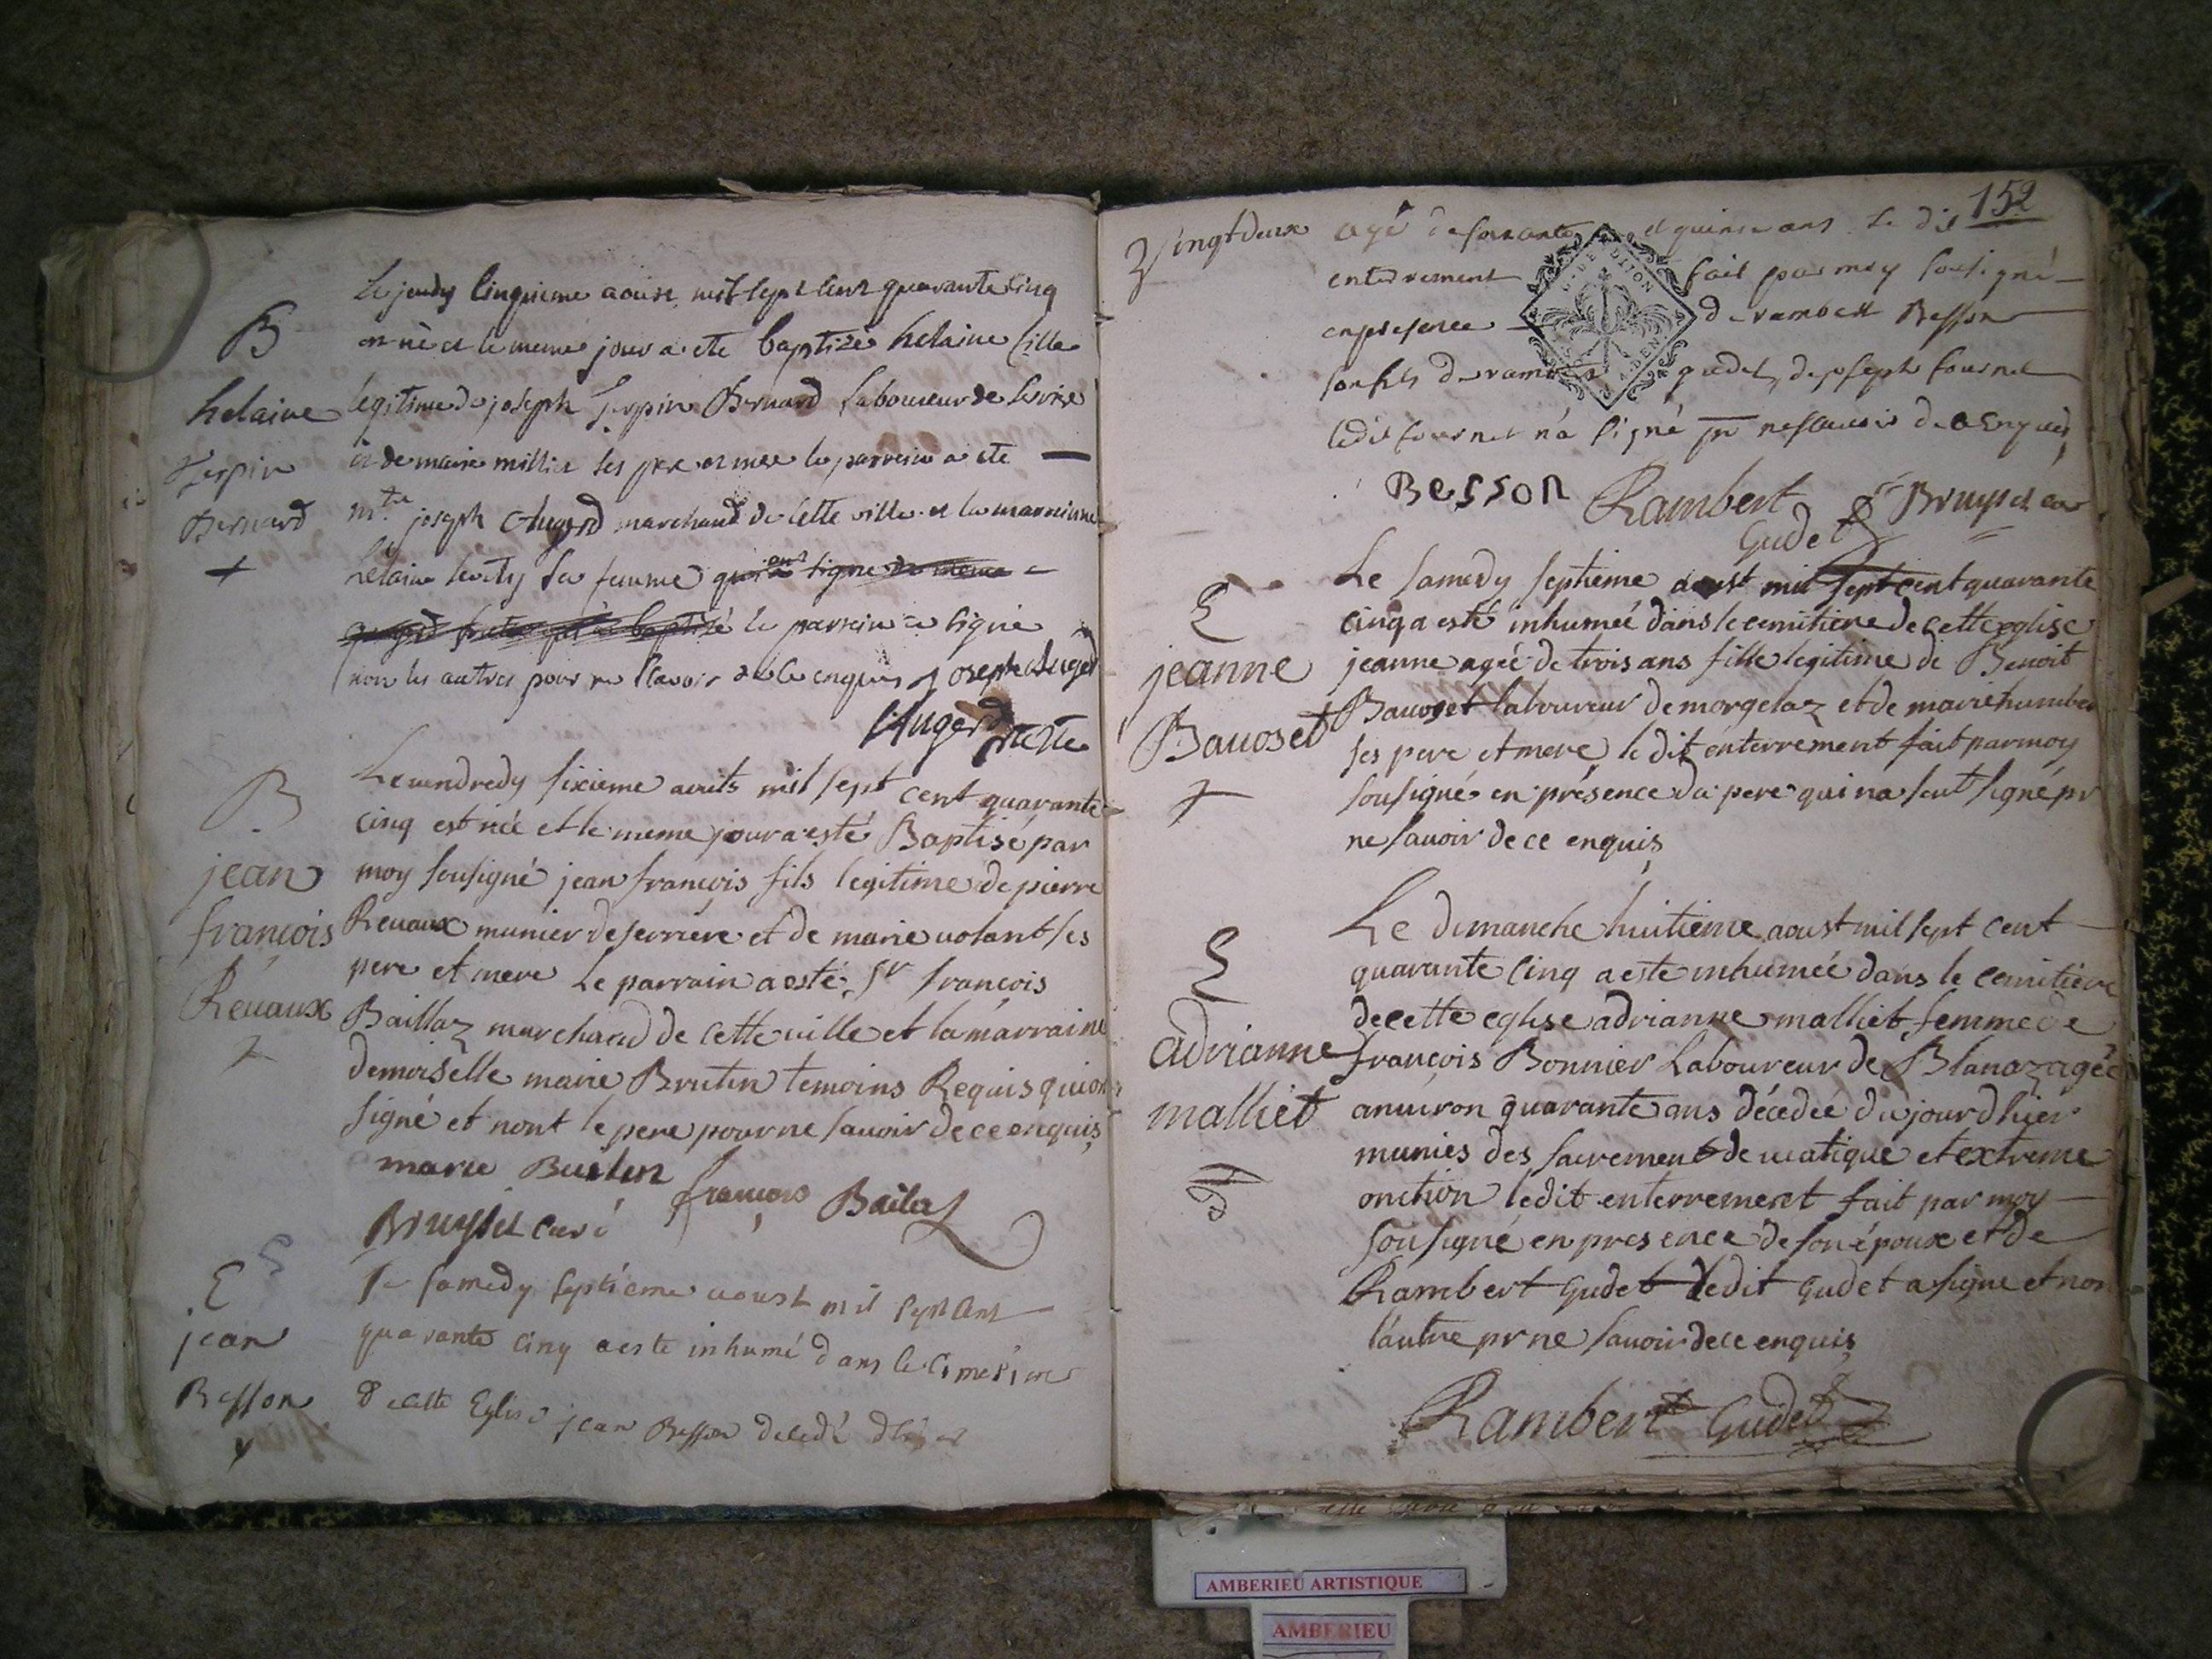 B
helaine
Bernard
Le jeudy cinquieme aoust mil sept cent quarante cinq
est née et le meme jour a ete baptizée helaine fille
legitime de joseph Bernard laboureur de
et de marie milliet ses pere et mere le parrein a ete
mtre joseph Augerd marchand de cette ville et la marreinne
helaine sa femme qui ont signé
le parrein a signé
non les autres pour ne scavoir de ce enquis joseph Augerd
Augerd
B
jean
françois
Reuaux
Le vendredy sixieme aouts mil sept cent quarante
cinq est née et le meme jour a esté Baptisé par
moy sousigné jean françois fils legitime de pierre
Reuaux munier de serriere et de marie uolant ses
pere et mere Le parrain a esté Sr françois
Baillaz marchand de cette uille et la marraine
demoiselle marie Brutin temoins Requis qui ont
signé et nont le pere pour ne sauoir de ce enquis
marie Burtin
françois Bailaz
Bruyset curé
E
jean
Besson
Le samedy septieme aoust mil sept cent
quarante cinq a este inhumé dans le cimetiere
de cette Eglise jean Besson decedé d'hier
152
Vingtdeux
agé de soixante et quinze ans. Le dit
enterrement fait par moy sousigné
en presence de rambert Besson
son fils de rambert gudet, de joseph fournet
ledit fournet n'a signé pr ne scauoir de ce Enquis
Besson Rambert Bruyset cur
Gudet
E
jeanne
Bauoset
Le samedy septieme aoust mil sept cent quarante
cinq a esté inhumée dans le cemitiere de cette eglise
jeanne agée de trois ans fille legitime de Benoit
Bauoset laboureur de morgelaz et de marie humber
ses pere et mere, le dit enterrement fait par moy
sousigné en présence du pere qui na seut signé pr
ne sauoir de ce enquis
E
adrianne
malliet
Le dimanche huitieme aoust mil sept cent
quarante cinq a este inhumée dans le cemitiere
de cette eglise adrianne malliet femme de
françois Bonnier Laboureur de Blanaz agée
anuiron quarante ans décedée du jourdhier
munies des sacrement de uiatique et extreme
onction ledit enterrement fait par moy
sousigné en presence de son époux et de
Rambert Gudet ledit Gudet a signe et non
láutre pr ne sauoir de ce enquis
Rambert Gudet
AMBERIEU ARTISTIQUE
AMBERIEU